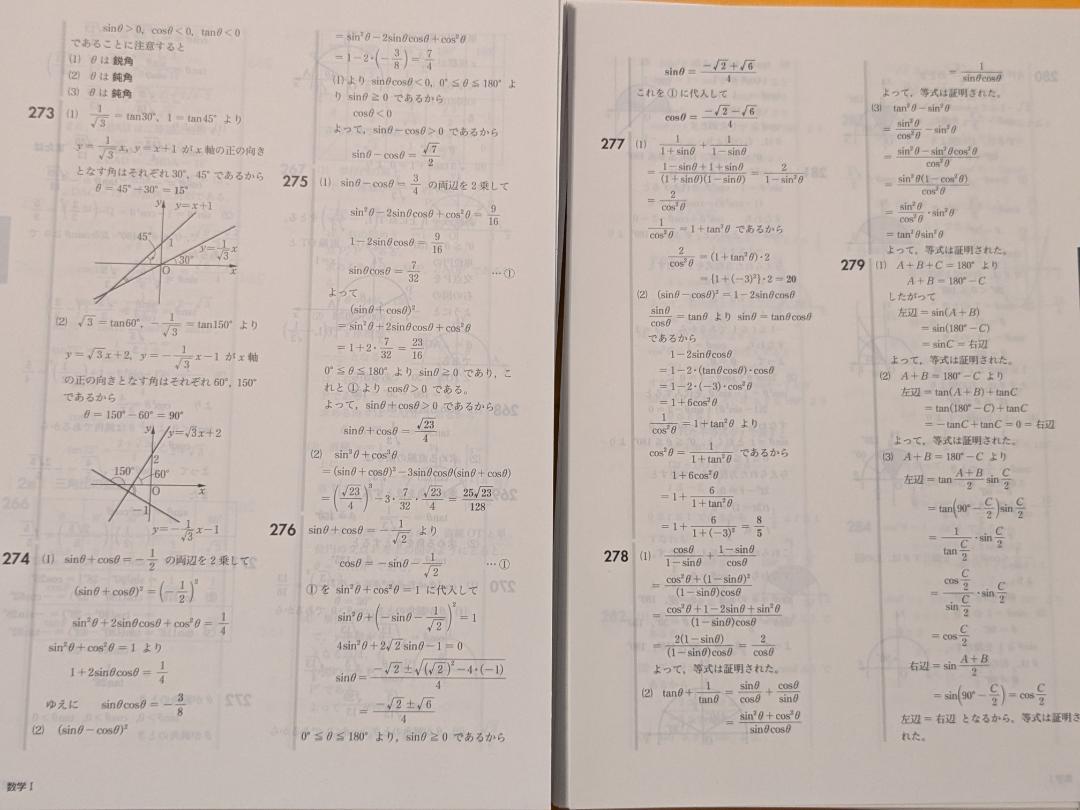 sinθ>0, cosθ<0, tanθ<0
であることに注意すると
(1) θは 鋭角
(2) θは 鈍角
(3) θは 鈍角
273 (1) 1/√3 = tan30°, 1 = tan45° より
y = 1/√3 x, y = x+1 が x 軸の正の向き
となす角はそれぞれ 30°, 45° であるから
θ = 45° − 30° = 15°
y y=x+1
45° 1 y=1/√3 x
30°
O x
(2) √3 = tan60°, −1/√3 = tan150° より
y = √3x+2, y = −1/√3 x−1 が x 軸
の正の向きとなす角はそれぞれ 60°, 150°
であるから
θ = 150° − 60° = 90°
y y=√3x+2
2
150° 60°
O x
−1
y=−1/√3 x−1
274 (1) sinθ+cosθ = −1/2 の両辺を2乗して
(sinθ+cosθ)² = (−1/2)²
sin²θ+2sinθcosθ+cos²θ = 1/4
sin²θ+cos²θ = 1 より
1+2sinθcosθ = 1/4
ゆえに sinθcosθ = −3/8
(2) (sinθ−cosθ)²
数学Ⅰ
= sin²θ−2sinθcosθ+cos²θ
= 1−2・(−3/8) = 7/4
(1)より sinθcosθ<0, 0°≦θ≦180° よ
り sinθ≧0 であるから
cosθ<0
よって, sinθ−cosθ>0 であるから
sinθ−cosθ = √7/2
275 (1) sinθ−cosθ = 3/4 の両辺を2乗して
sin²θ−2sinθcosθ+cos²θ = 9/16
1−2sinθcosθ = 9/16
sinθcosθ = 7/32 …①
よって
(sinθ+cosθ)²
= sin²θ+2sinθcosθ+cos²θ
= 1+2・7/32 = 23/16
0°≦θ≦180° より sinθ≧0 であり, こ
れと①より cosθ>0 である。
よって, sinθ+cosθ>0 であるから
sinθ+cosθ = √23/4
(2) sin³θ+cos³θ
= (sinθ+cosθ)³−3sinθcosθ(sinθ+cosθ)
= (√23/4)³−3・7/32・√23/4 = 25√23/128
276 sinθ+cosθ = −1/√2 より
cosθ = −sinθ−1/√2 …①
①を sin²θ+cos²θ = 1 に代入して
sin²θ+(−sinθ−1/√2)² = 1
4sin²θ+2√2 sinθ−1 = 0
sinθ = (−√2±√((√2)²−4・(−1)))/4
= (−√2±√6)/4
0°≦θ≦180° より, sinθ≧0 であるから
sinθ = (−√2+√6)/4
これを①に代入して
cosθ = (−√2−√6)/4
277 (1) 1/(1+sinθ) + 1/(1−sinθ)
= (1−sinθ+1+sinθ)/((1+sinθ)(1−sinθ)) = 2/(1−sin²θ)
= 2/cos²θ
1/cos²θ = 1+tan²θ であるから
2/cos²θ = (1+tan²θ)・2
= {1+(−3)²}・2 = 20
(2) (sinθ−cosθ)² = 1−2sinθcosθ
sinθ/cosθ = tanθ より sinθ = tanθcosθ
であるから
1−2sinθcosθ
= 1−2・(tanθcosθ)・cosθ
= 1−2・(−3)・cos²θ
= 1+6cos²θ
1/cos²θ = 1+tan²θ より
cos²θ = 1/(1+tan²θ) であるから
1+6cos²θ
= 1+6/(1+tan²θ)
= 1+6/(1+(−3)²) = 8/5
278 (1) cosθ/(1−sinθ) + (1−sinθ)/cosθ
= (cos²θ+(1−sinθ)²)/((1−sinθ)cosθ)
= (cos²θ+1−2sinθ+sin²θ)/((1−sinθ)cosθ)
= 2(1−sinθ)/((1−sinθ)cosθ) = 2/cosθ
よって, 等式は証明された。
(2) tanθ+1/tanθ = sinθ/cosθ + cosθ/sinθ
= (sin²θ+cos²θ)/(sinθcosθ)
= 1/(sinθcosθ)
よって, 等式は証明された。
(3) tan²θ−sin²θ
= sin²θ/cos²θ −sin²θ
= (sin²θ−sin²θcos²θ)/cos²θ
= sin²θ(1−cos²θ)/cos²θ
= sin²θ/cos²θ・sin²θ
= tan²θsin²θ
よって, 等式は証明された。
279 (1) A+B+C = 180° より
A+B = 180°−C
したがって
左辺 = sin(A+B)
= sin(180°−C)
= sinC = 右辺
よって, 等式は証明された。
(2) A+B = 180°−C より
左辺 = tan(A+B)+tanC
= tan(180°−C)+tanC
= −tanC+tanC = 0 = 右辺
よって, 等式は証明された。
(3) A+B = 180°−C より
左辺 = tan (A+B)/2 sin C/2
= tan(90°−C/2)sin C/2
= 1/(tan C/2)・sin C/2
= (cos C/2)/(sin C/2)・sin C/2
= cos C/2
右辺 = sin (A+B)/2
= sin(90°−C/2) = cos C/2
左辺 = 右辺 となるから, 等式は証明さ
れた。